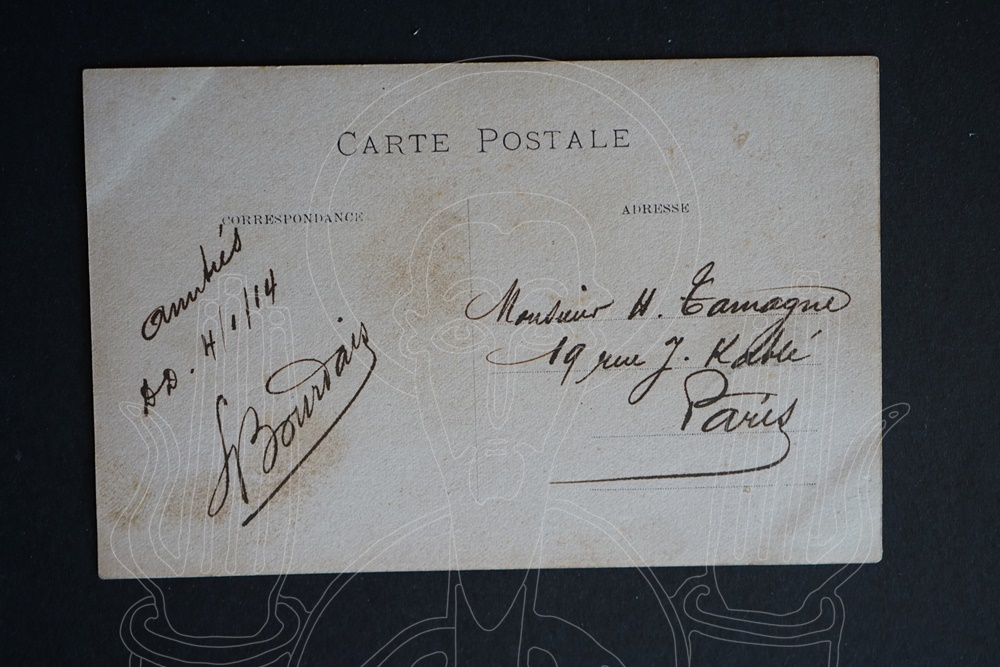 CARTE POSTALE
CORRESPONDANCE
ADRESSE
amitiés
DD. 4/1/14
Bourdais
Monsieur H. Tamagne
19 rue J. Kablé
Paris